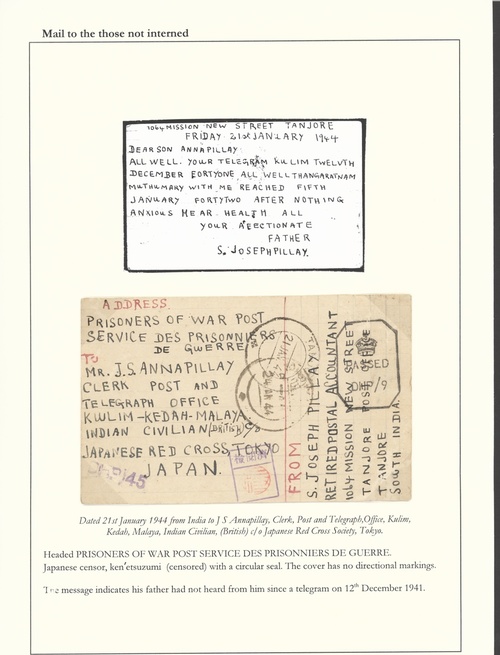 Mail to the those not interned
1064 MISSION NEW STREET TANJORE
FRIDAY 21st JANUARY 1944
DEAR SON ANNAPILLAY
ALL WELL. YOUR TELEGRAM KULIM TWELVTH
DECEMBER FORTYONE ALL WELL THANGARATNAM
MUTHUMARY WITH ME REACHED FIFTH
JANUARY FORTYTWO AFTER NOTHING
ANXIOUS HEAR HEALTH ALL
YOUR AFECTIONATE
FATHER
S. JOSEPHPILLAY.
ADDRESS.
PRISONERS OF WAR POST
SERVICE DES PRISONNIERS
DE GUERRE
TO
MR. J.S. ANNAPILLAY
CLERK POST AND
TELEGRAPH OFFICE
KULIM-KEDAH-MALAYA
INDIAN CIVILIAN (BRITISH) C/o
JAPANESE RED CROSS, TOKYO
JAPAN.
FROM
S. JOSEPH PILLAY
RETIRED POSTAL ACCOUNTANT
1064 MISSION NEW STREET
TANJORE POST OFFICE
TANJORE
SOUTH INDIA.
PASSED
DHP/9
Dated 21st January 1944 from India to J S Annapillay, Clerk, Post and Telegraph,Office, Kulim,
Kedah, Malaya, Indian Civilian, (British) c/o Japanese Red Cross Society, Tokyo.
Headed PRISONERS OF WAR POST SERVICE DES PRISONNIERS DE GUERRE.
Japanese censor, ken'etsuzumi (censored) with a circular seal. The cover has no directional markings.
The message indicates his father had not heard from him since a telegram on 12th December 1941.